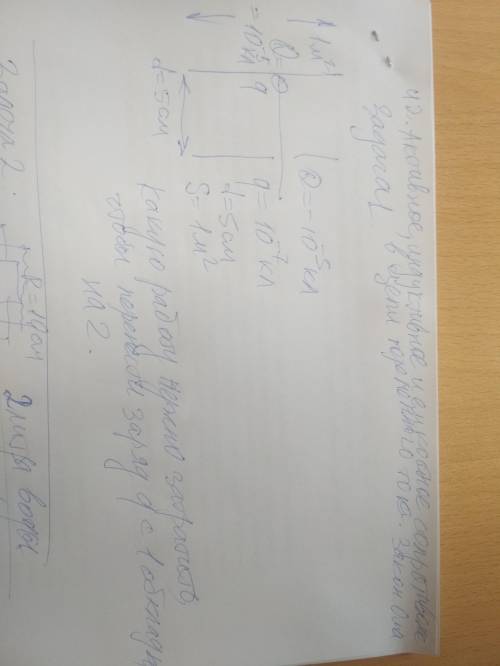 42. Активное, индуктивное и емкостное сопротивление
в цепи переменного тока. Закон Ома
Задача 1
1 м²
Q =
= 10⁻⁵ кл
q
Q = -10⁻⁵ кл
q = 10⁻⁷ кл
d = 5 см
d = 5 см
S = 1 м²
Какую работу нужно
чтобы перенести заряд q с 1 обкладки
на 2.
Задача 2.
R = 10 ом
2 литра воды